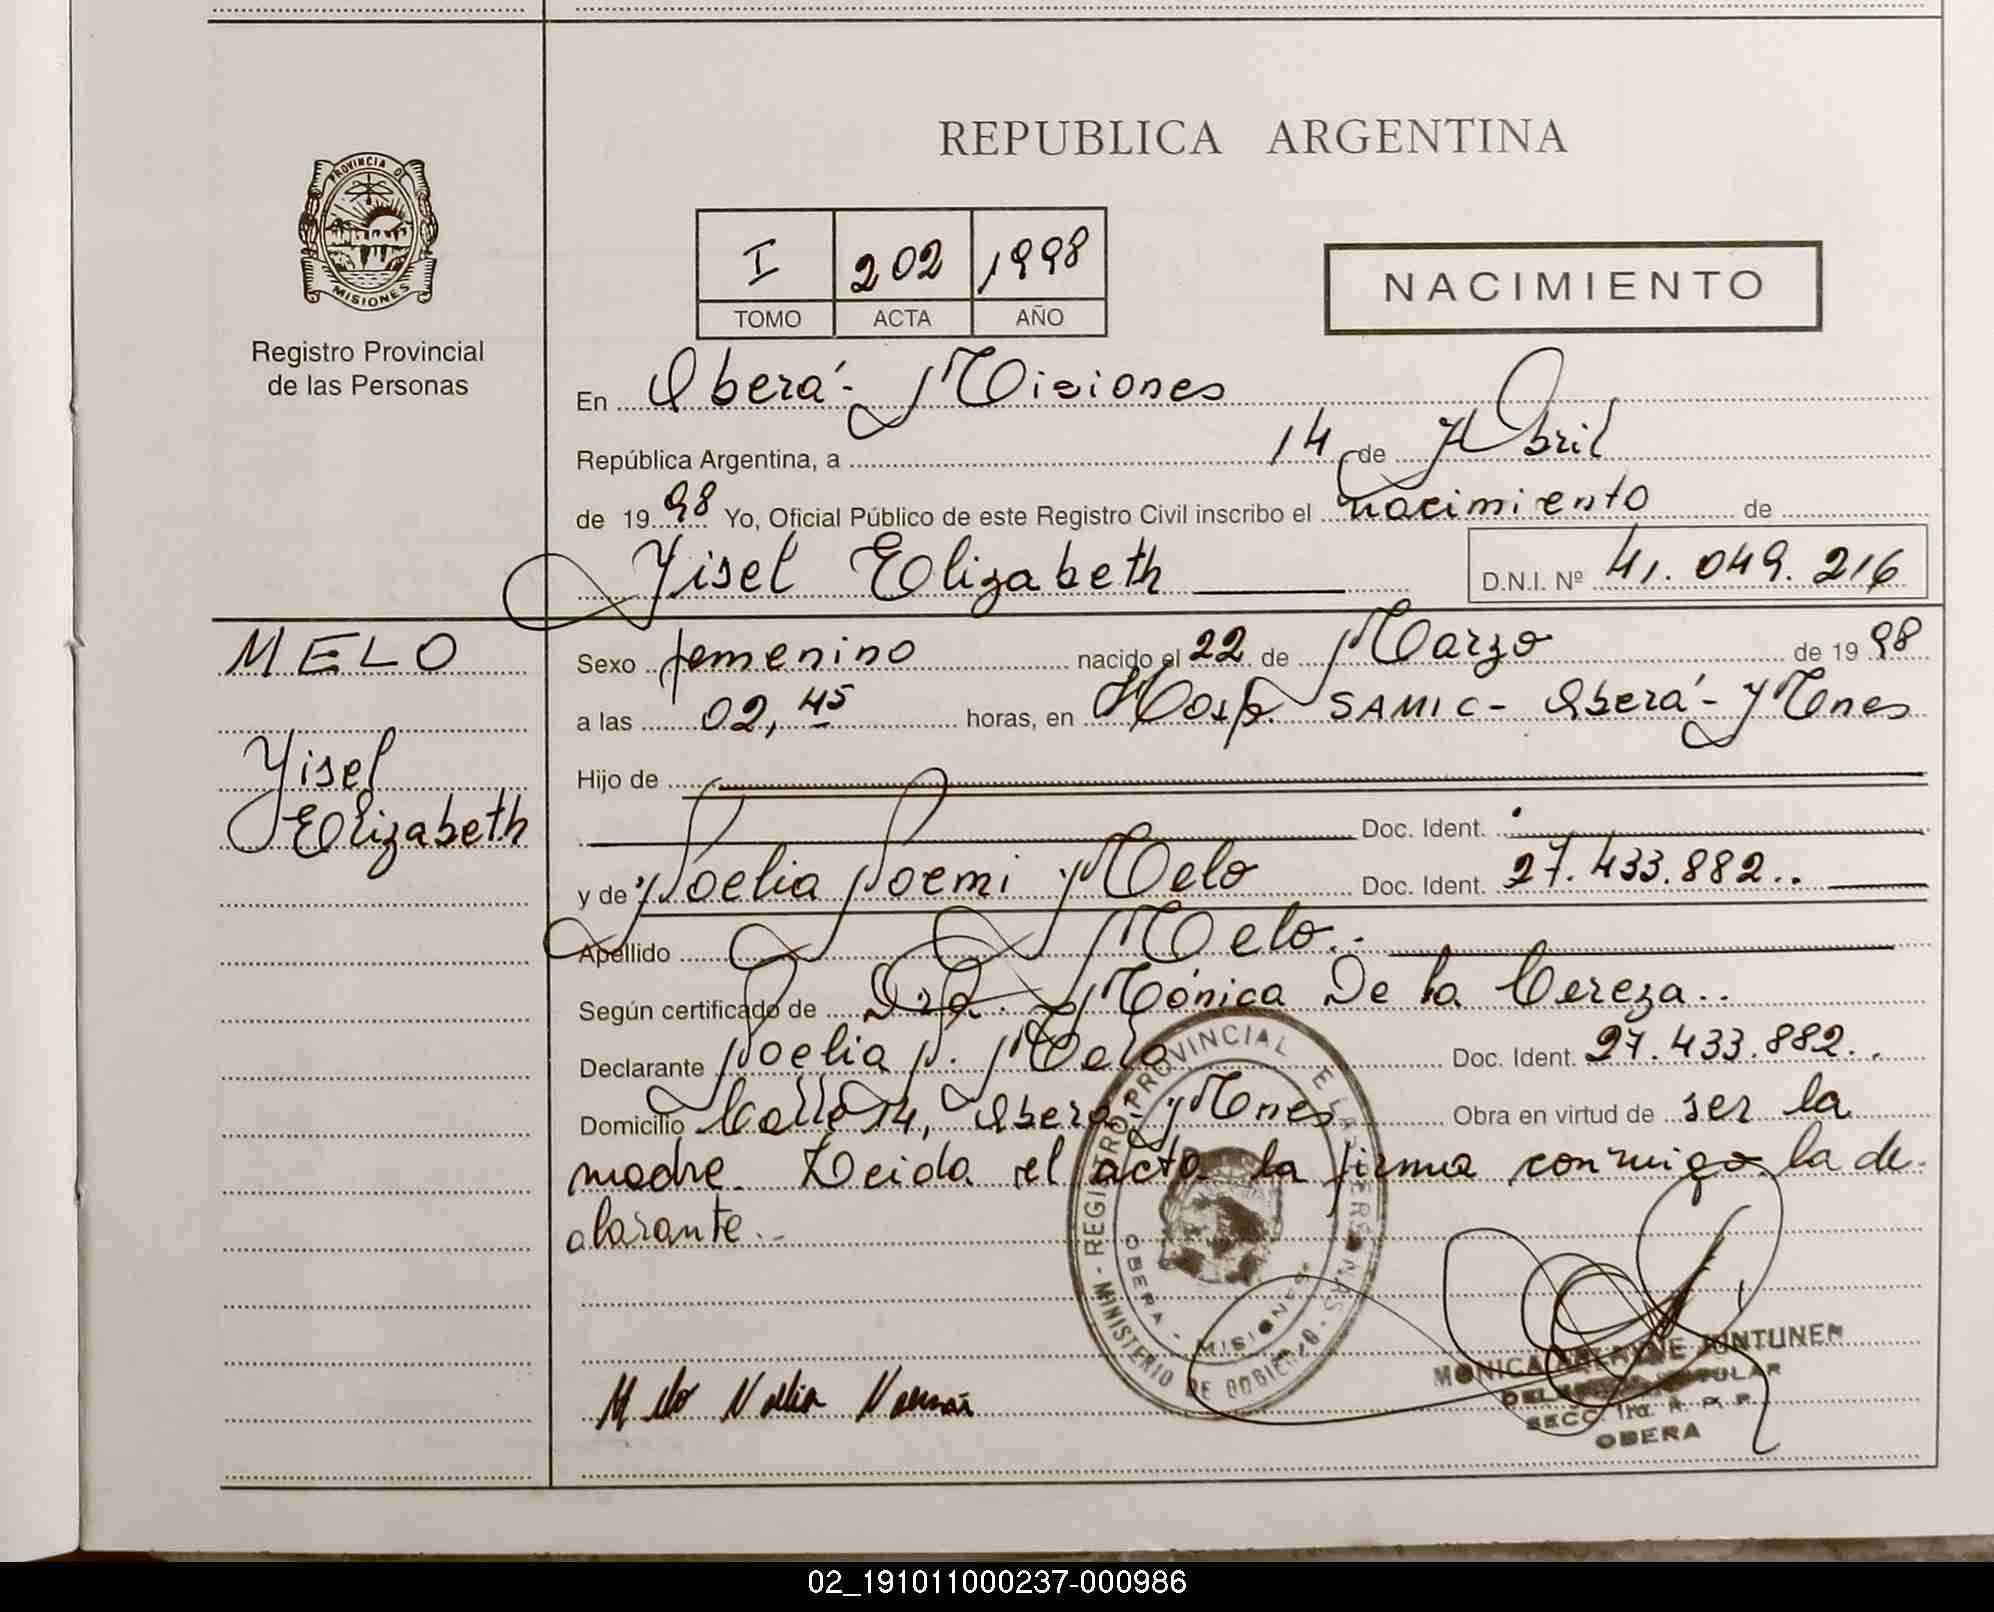 REPUBLICA ARGENTINA
PROVINCIA DE
MISIONES
Registro Provincial
de las Personas
I 202 1998
TOMO ACTA AÑO
NACIMIENTO
En Oberá - Misiones
República Argentina, a 14 de Abril
de 1998 Yo, Oficial Público de este Registro Civil inscribo el nacimiento de
Yisel Elizabeth D.N.I. Nº 41.049.216
MELO
Yisel
Elizabeth
Sexo femenino nacido el 22 de Marzo de 1998
a las 02,45 horas, en Hosp. SAMIC - Oberá - Mnes
Hijo de
Doc. Ident.
y de Noelia Noemi Melo Doc. Ident. 27.433.882..
Apellido Melo.-
Según certificado de Dra. Mónica De la Cereza..
Declarante Noelia N. Melo Doc. Ident. 27.433.882..
Domicilio Calle 14, Oberá - Mnes Obra en virtud de ser la
madre. Leida el acta la firma conmigo la de-
clarante.-
REGISTRO PROVINCIAL DE LAS PERSONAS - MINISTERIO DE GOBIERNO -
OBERA - MISIONES
Melo Noelia Noemi
MONICA JUNTUNEN
TITULAR
SECC. 1ra. R. P. P.
OBERA
02_191011000237-000986